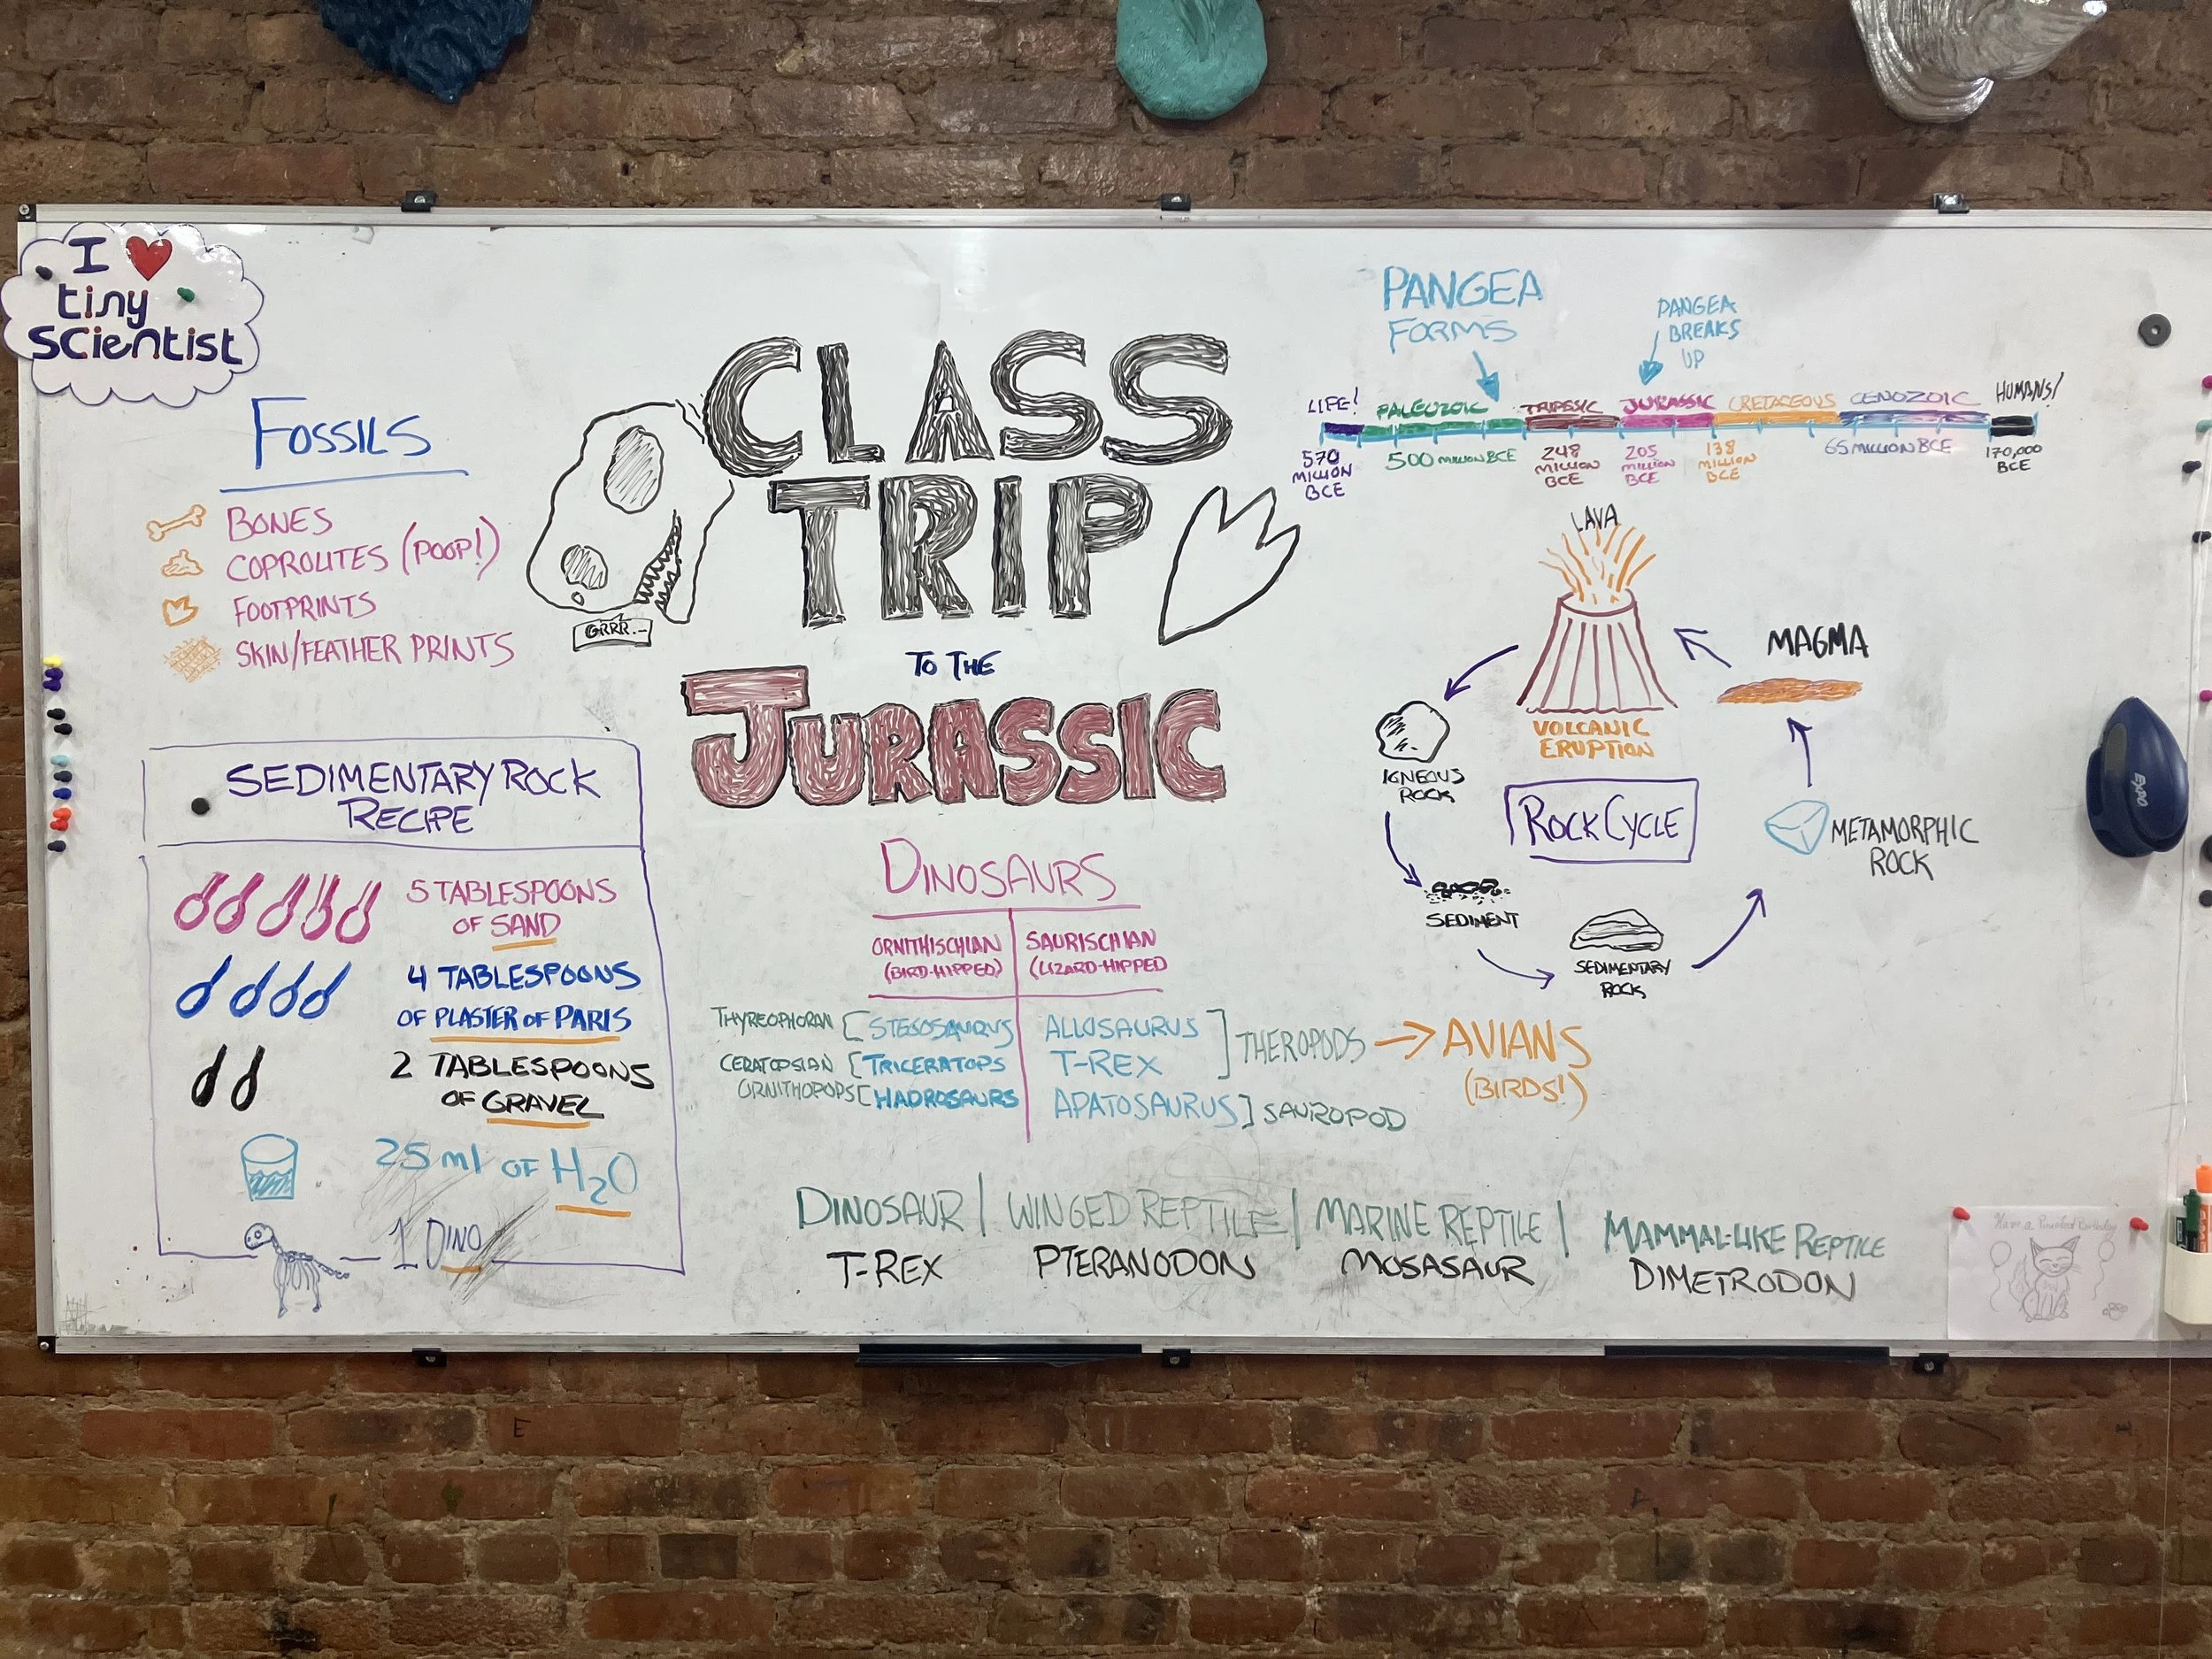 I ❤ 
tiny
scientist
FOSSILS
BONES
COPROLITES (POOP!)
FOOTPRINTS
SKIN/FEATHER PRINTS
SEDIMENTARY ROCK
RECIPE
5 TABLESPOONS
OF SAND
4 TABLESPOONS
OF PLASTER OF PARIS
2 TABLESPOONS
OF GRAVEL
25 ml OF H2O
1 DINO
CLASS
TRIP
GRRR.-
TO THE
JURASSIC
DINOSAURS
ORNITHISCHIAN
(BIRD-HIPPED)
SAURISCHIAN
(LIZARD-HIPPED
THYREOPHORAN [ STEGOSAURUS
CERATOPSIAN [ TRICERATOPS
ORNITHOPODS [ HADROSAURS
ALLOSAURUS
T-REX
] THEROPODS → AVIANS
(BIRDS!)
APATOSAURUS ] SAUROPOD
DINOSAUR | WINGED REPTILE | MARINE REPTILE | MAMMAL-LIKE REPTILE
T-REX PTERANODON MOSASAUR DIMETRODON
PANGEA
FORMS
PANGEA
BREAKS
UP
LIFE! PALEOZOIC TRIASSIC JURASSIC CRETACEOUS CENOZOIC HUMANS!
570
MILLION
BCE
500 MILLION BCE
248
MILLION
BCE
205
MILLION
BCE
138
MILLION
BCE
65 MILLION BCE
170,000
BCE
LAVA
VOLCANIC
ERUPTION
MAGMA
IGNEOUS
ROCK
ROCK CYCLE
METAMORPHIC
ROCK
SEDIMENT
SEDIMENTARY
ROCK
Expo
Have a